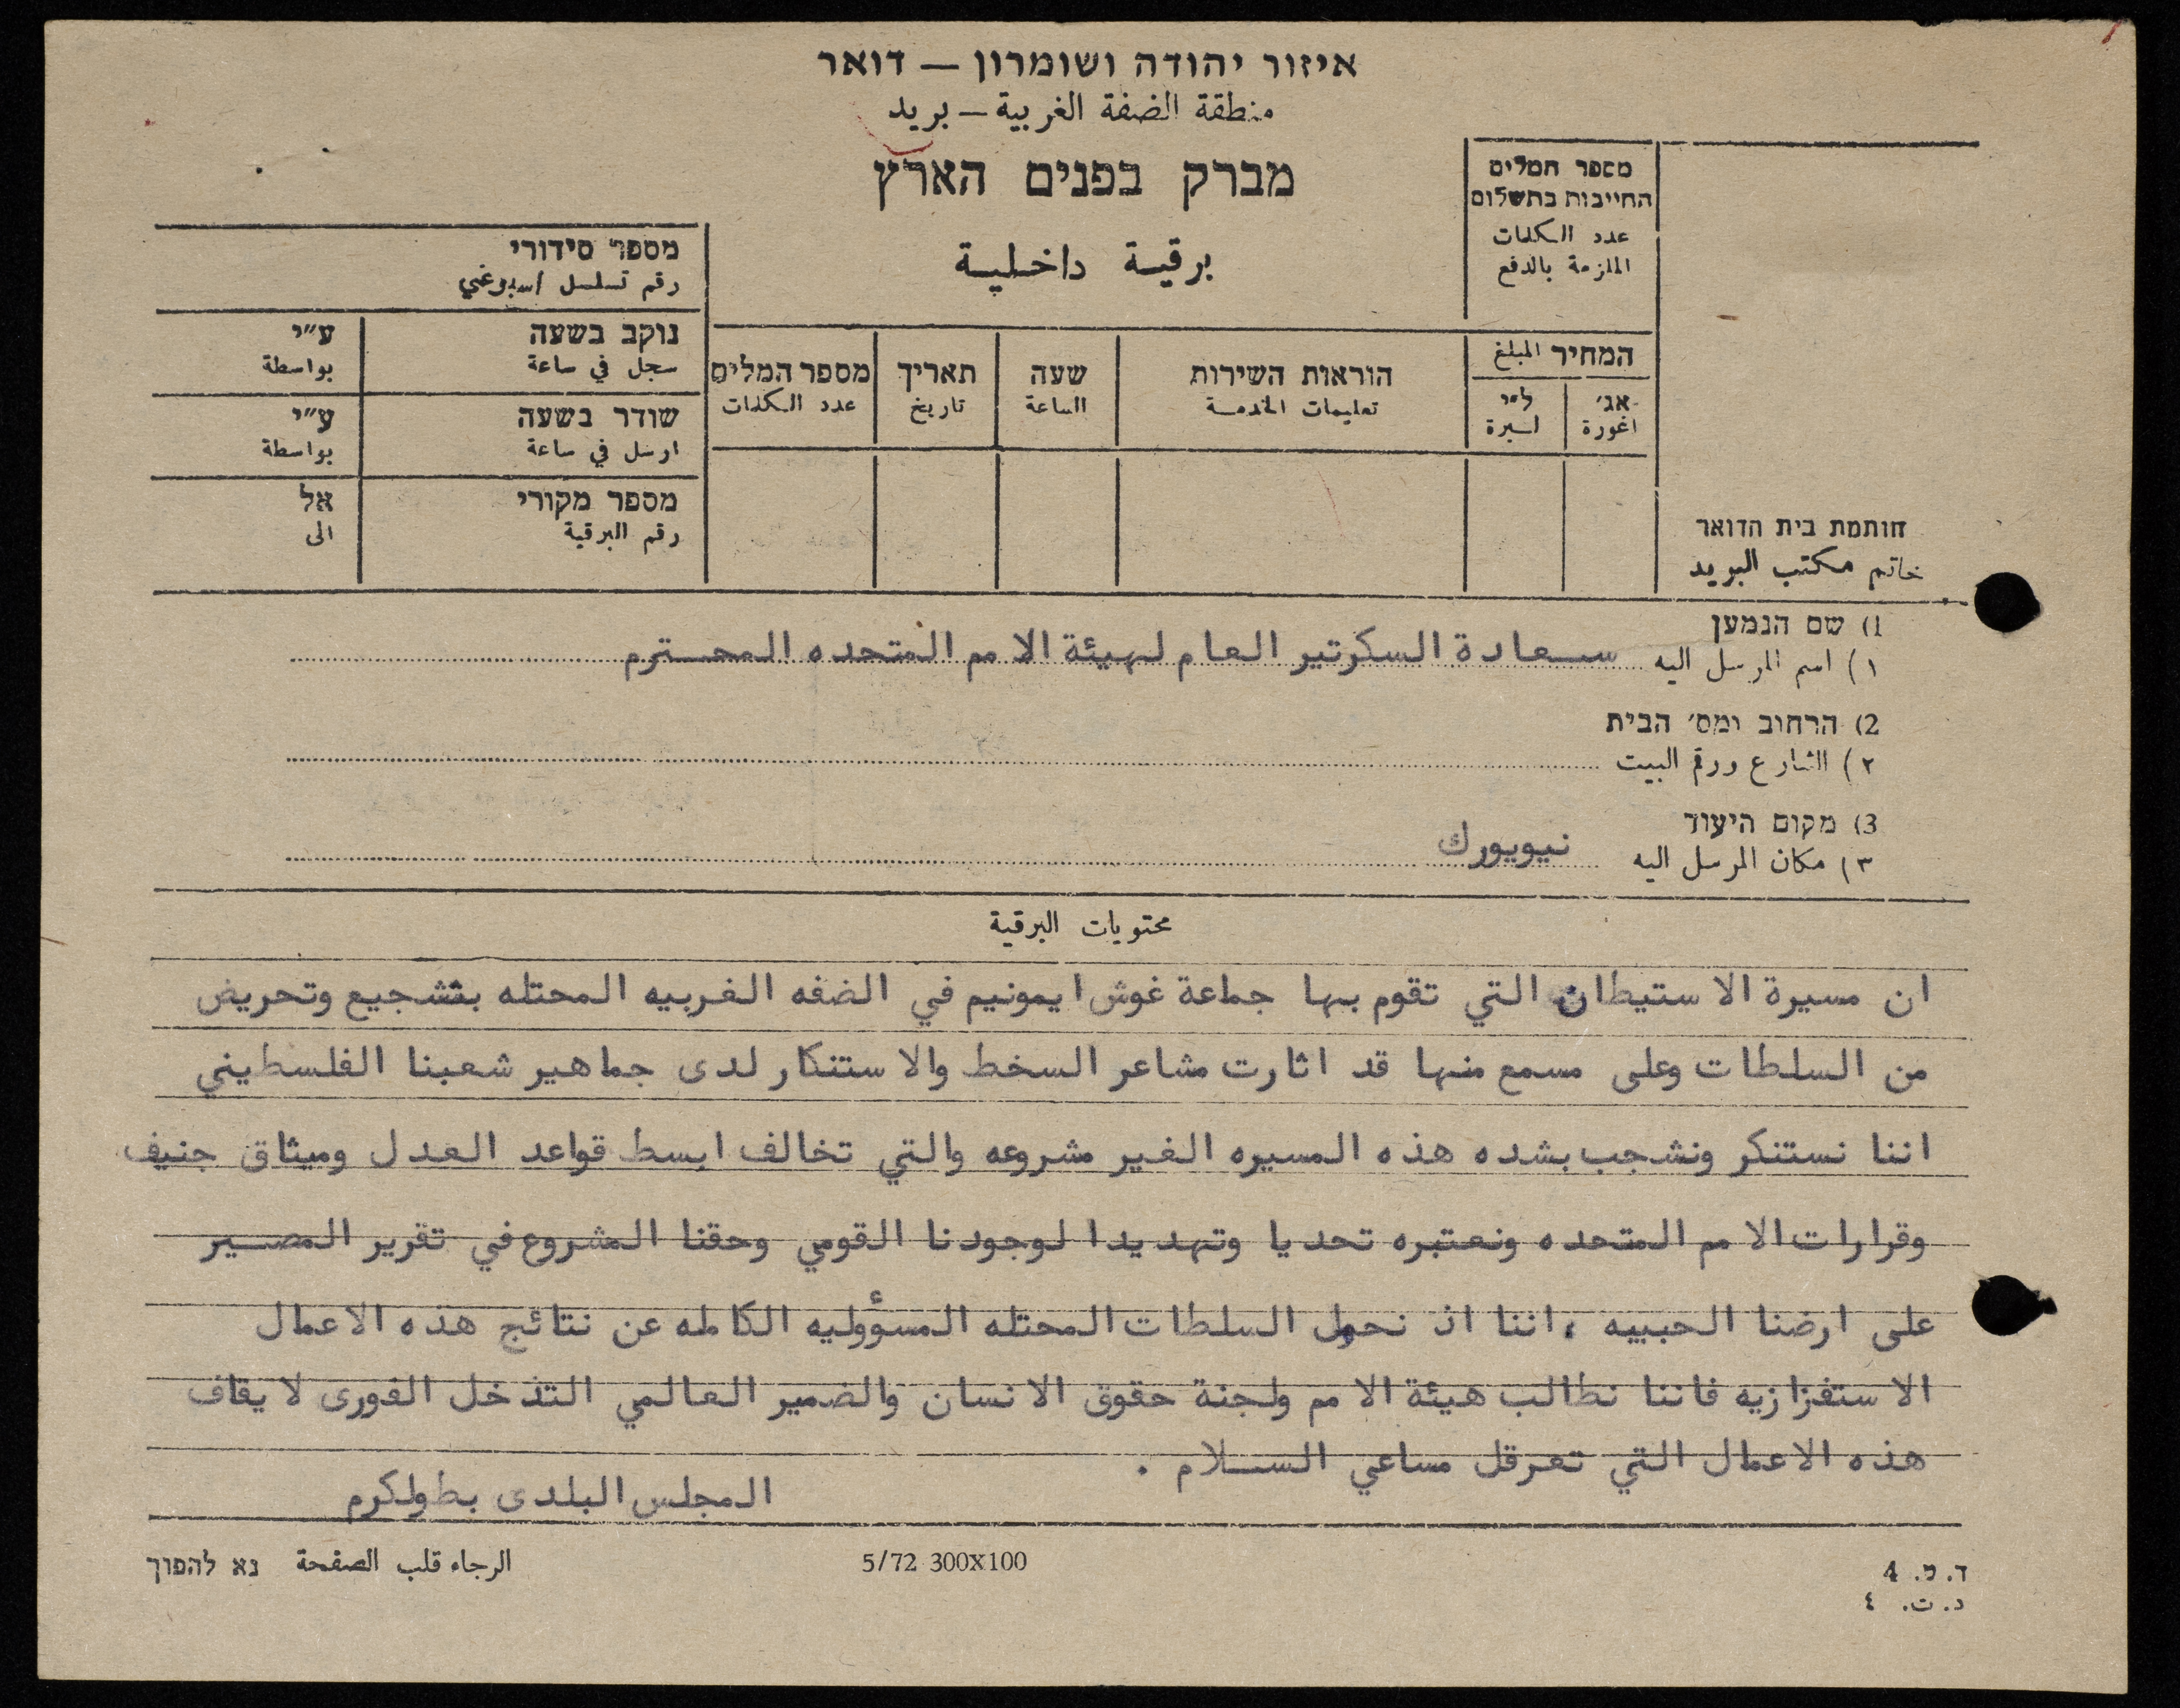 איזור יהודה ושומרון — דואר
منطقة الضفة الغربية — بريد
מברק בפנים הארץ
برقية داخلية
מספר המלים
החייבות בתשלום
عدد الكلمات
الملزمة بالدفع
המחיר المبلغ
אג׳ ל״י
اغورة ليرة
הוראות השירות
تعليمات الخدمة
שעה
الساعة
תאריך
تاريخ
מספר המלים
عدد الكلمات
מספר סידורי
رقم تسلسل اسبوعي
נוקב בשעה ע״י
سجل في ساعة بواسطة
שודר בשעה ע״י
ارسل في ساعة بواسطة
מספר מקורי אל
رقم البرقية الى
חותמת בית הדואר
خاتم مكتب البريد
1) שם הנמען
١) اسم المرسل اليه سعادة السكرتير العام لهيئة الامم المتحده المحترم
2) הרחוב ומס׳ הבית
٢) الشارع ورقم البيت
3) מקום היעוד
٣) مكان المرسل اليه نيويورك
محتويات البرقية
ان مسيرة الاستيطان التي تقوم بها جماعة غوش ايمونيم في الضفه الغربيه المحتله بتشجيع وتحريض
من السلطات وعلى مسمع منها قد اثارت مشاعر السخط والاستنكار لدى جماهير شعبنا الفلسطيني
اننا نستنكر ونشجب بشده هذه المسيره الغير مشروعه والتي تخالف ابسط قواعد العدل وميثاق جنيف
وقرارات الامم المتحده ونعتبره تحديا وتهديدا لوجودنا القومي وحقنا المشروع في تقرير المصير
على ارضنا الحبيبه ، اننا اذ نحمل السلطات المحتله المسؤوليه الكامله عن نتائج هذه الاعمال
الاستفزازيه فاننا نطالب هيئة الامم ولجنة حقوق الانسان والضمير العالمي التدخل الفورى لايقاف
هذه الاعمال التي تعرقل مساعي السلام .
المجلس البلدى بطولكرم
ד. ט. 4
د. ت. ٤
5/72 300X100
الرجاء قلب الصفحة נא להפוך